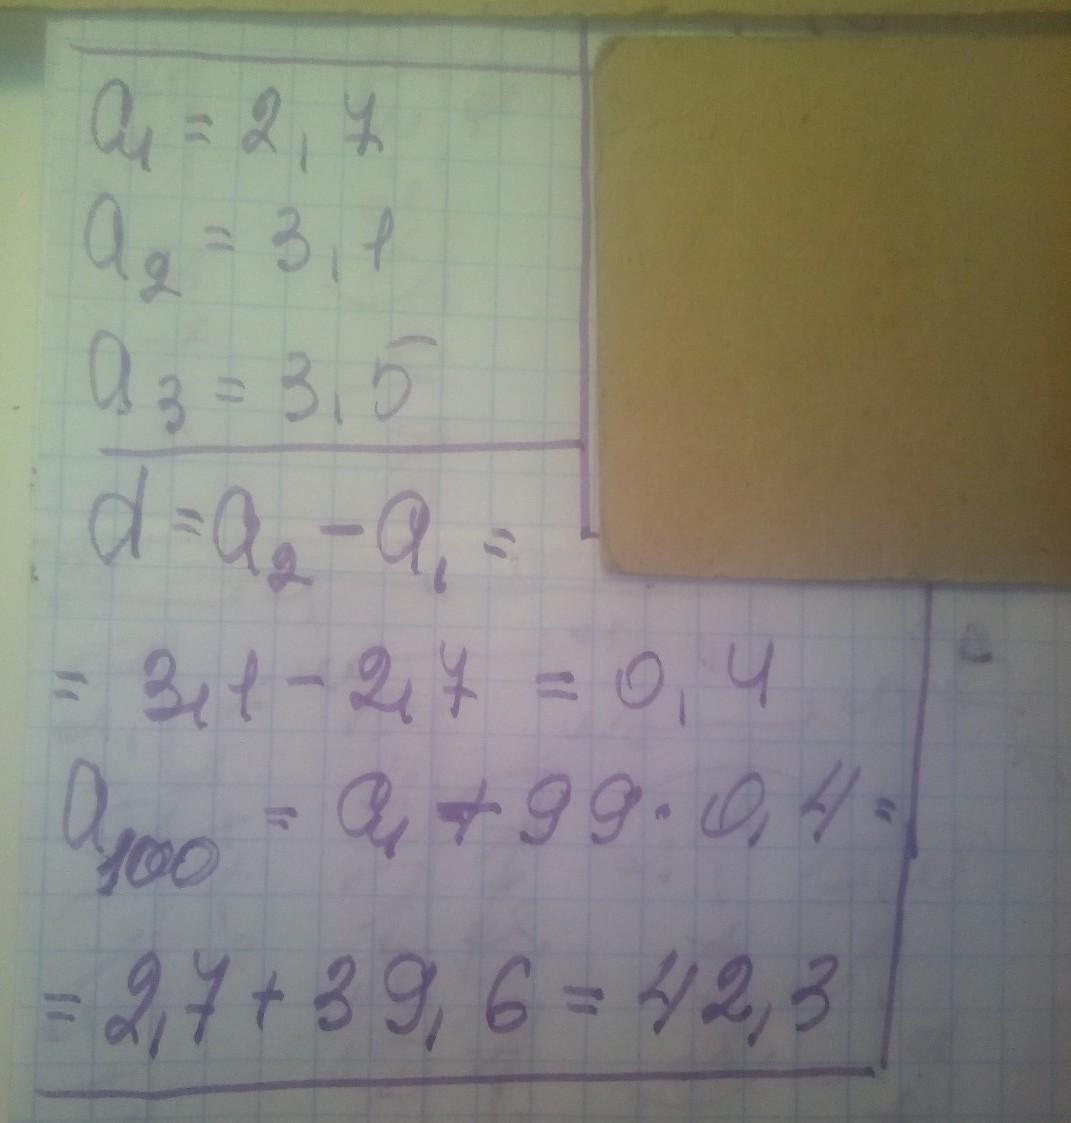 a₁ = 2,7
a₂ = 3,1
a₃ = 3,5
d = a₂ - a₁ =
= 3,1 - 2,7 = 0,4
a₁₀₀ = a₁ + 99 · 0,4 =
= 2,7 + 39,6 = 42,3